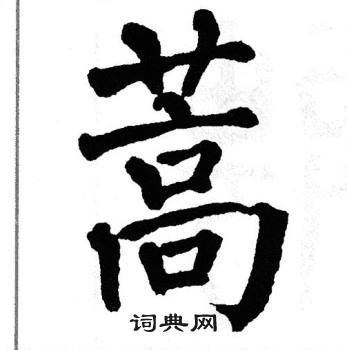 蒿
词典网